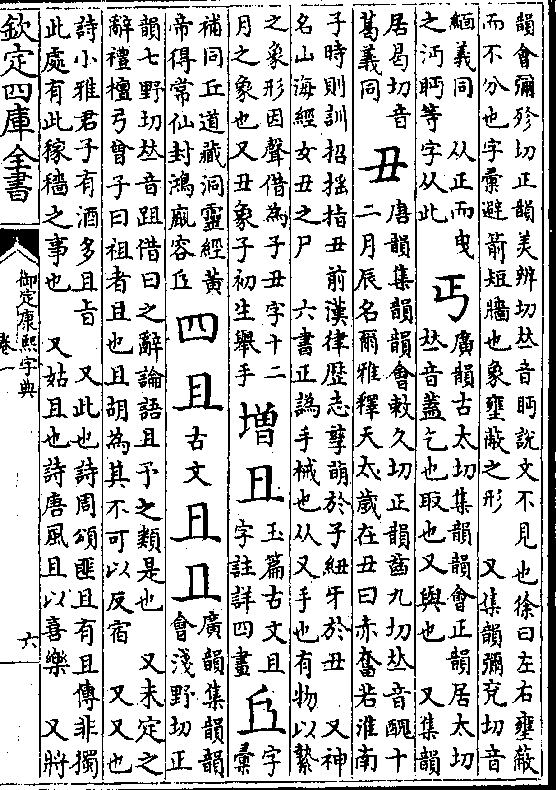 韻會彌殄切正韻美辨切𠀤音眄說文不見也徐曰左右壅蔽
而不分也字彙避箭短牆也象壅蔽之形 又集韻彌兖切音
緬義同 从正而曳
之沔眄等字从此
丐
廣韻古太切集韻韻會正韻居太切
𠀤音蓋乞也取也又與也 又集韻
居曷切音
葛義同
丑
唐韻集韻韻會敕久切正韻齒九切𠀤音醜十
二月辰名爾雅釋天太歲在丑曰赤奮若淮南
子時則訓招搖指丑前漢律歷志孳萌於子紐牙於丑 又神
名山海經女丑之尸 六書正譌手械也从又手也有物以縶
之象形因聲借為子丑字十二
月之象也又丑象子初生舉手
增
玉篇古文且
字註詳四畫
字
彙
補同丘道藏洞靈經黃
帝得常仙封鴻厖容丘
四
且
古文
廣韻集韻韻
會淺野切正
韻七野切𠀤音跙借曰之辭論語且予之類是也 又未定之
辭禮檀弓曾子曰祖者且也且胡為其不可以反宿 又又也
詩小雅君子有酒多且旨 又此也詩周頌匪且有且傳非獨
此處有此稼穡之事也 又姑且也詩唐風且以喜樂 又將
欽定四庫全書
御定康熙字典
卷一
六